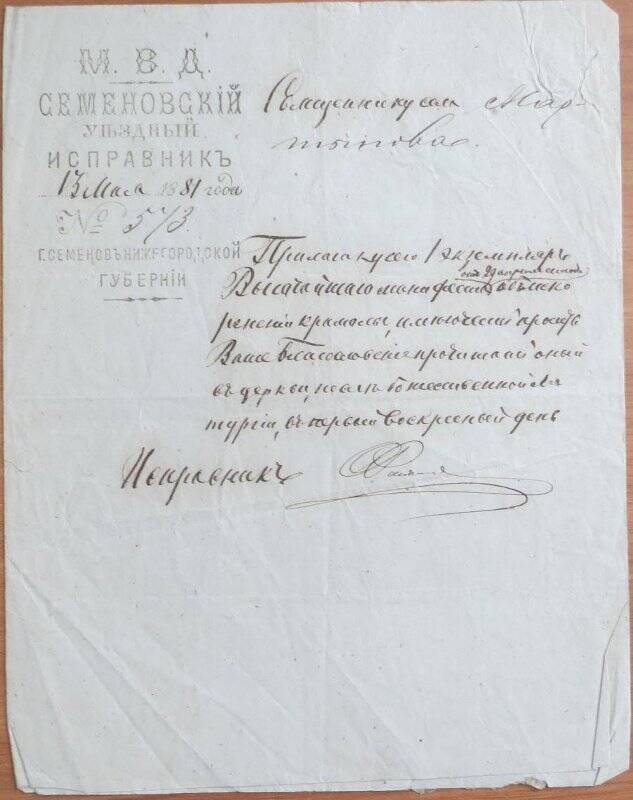 М. В. Д.
СЕМЕНОВСКІЙ
УѢЗДНЫЙ
ИСПРАВНИКЪ
13 Мая 1881 года
№ 573
Г. СЕМЕНОВЪ НИЖЕГОРОДСКОЙ
ГУБЕРНІИ
Священнику села Мар-
тынова.
Прилагая у сего 1 экземпляръ
отъ 29 апрѣля
Высочайшаго манифеста объ иско
рененіи крамолы, имѣю честь просить
Ваше Благословеніе прочитать оный
въ церкви, послѣ божественной ли
тургіи, въ первый воскресный день
Исправникъ